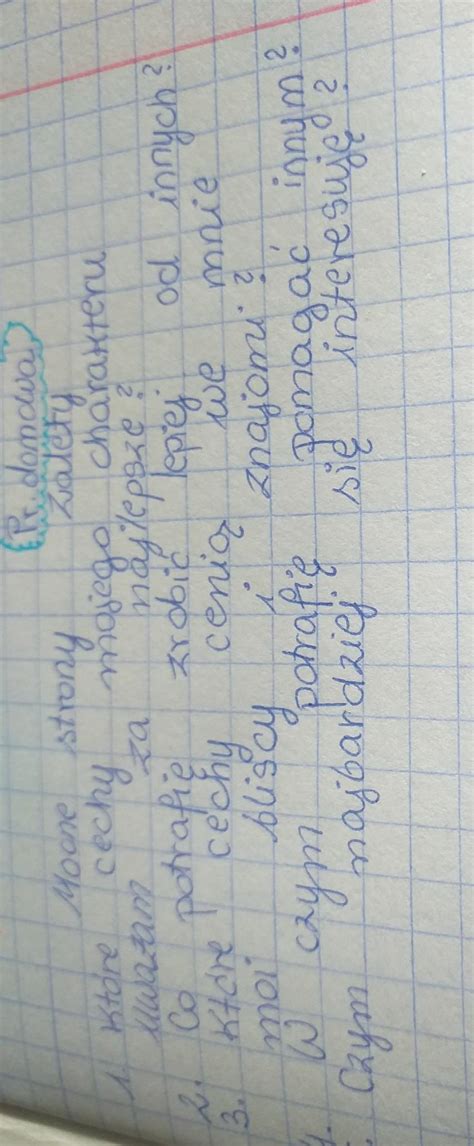 Pr. domowa
Mocne strony zalety
1. Które cechy mojego charakteru
uważam za najlepsze?
2. Co potrafię zrobić lepiej od innych?
3. Które cechy cenią we mnie
moi bliscy i znajomi?
W czym potrafię pomagać innym?
Czym najbardziej się interesuję?